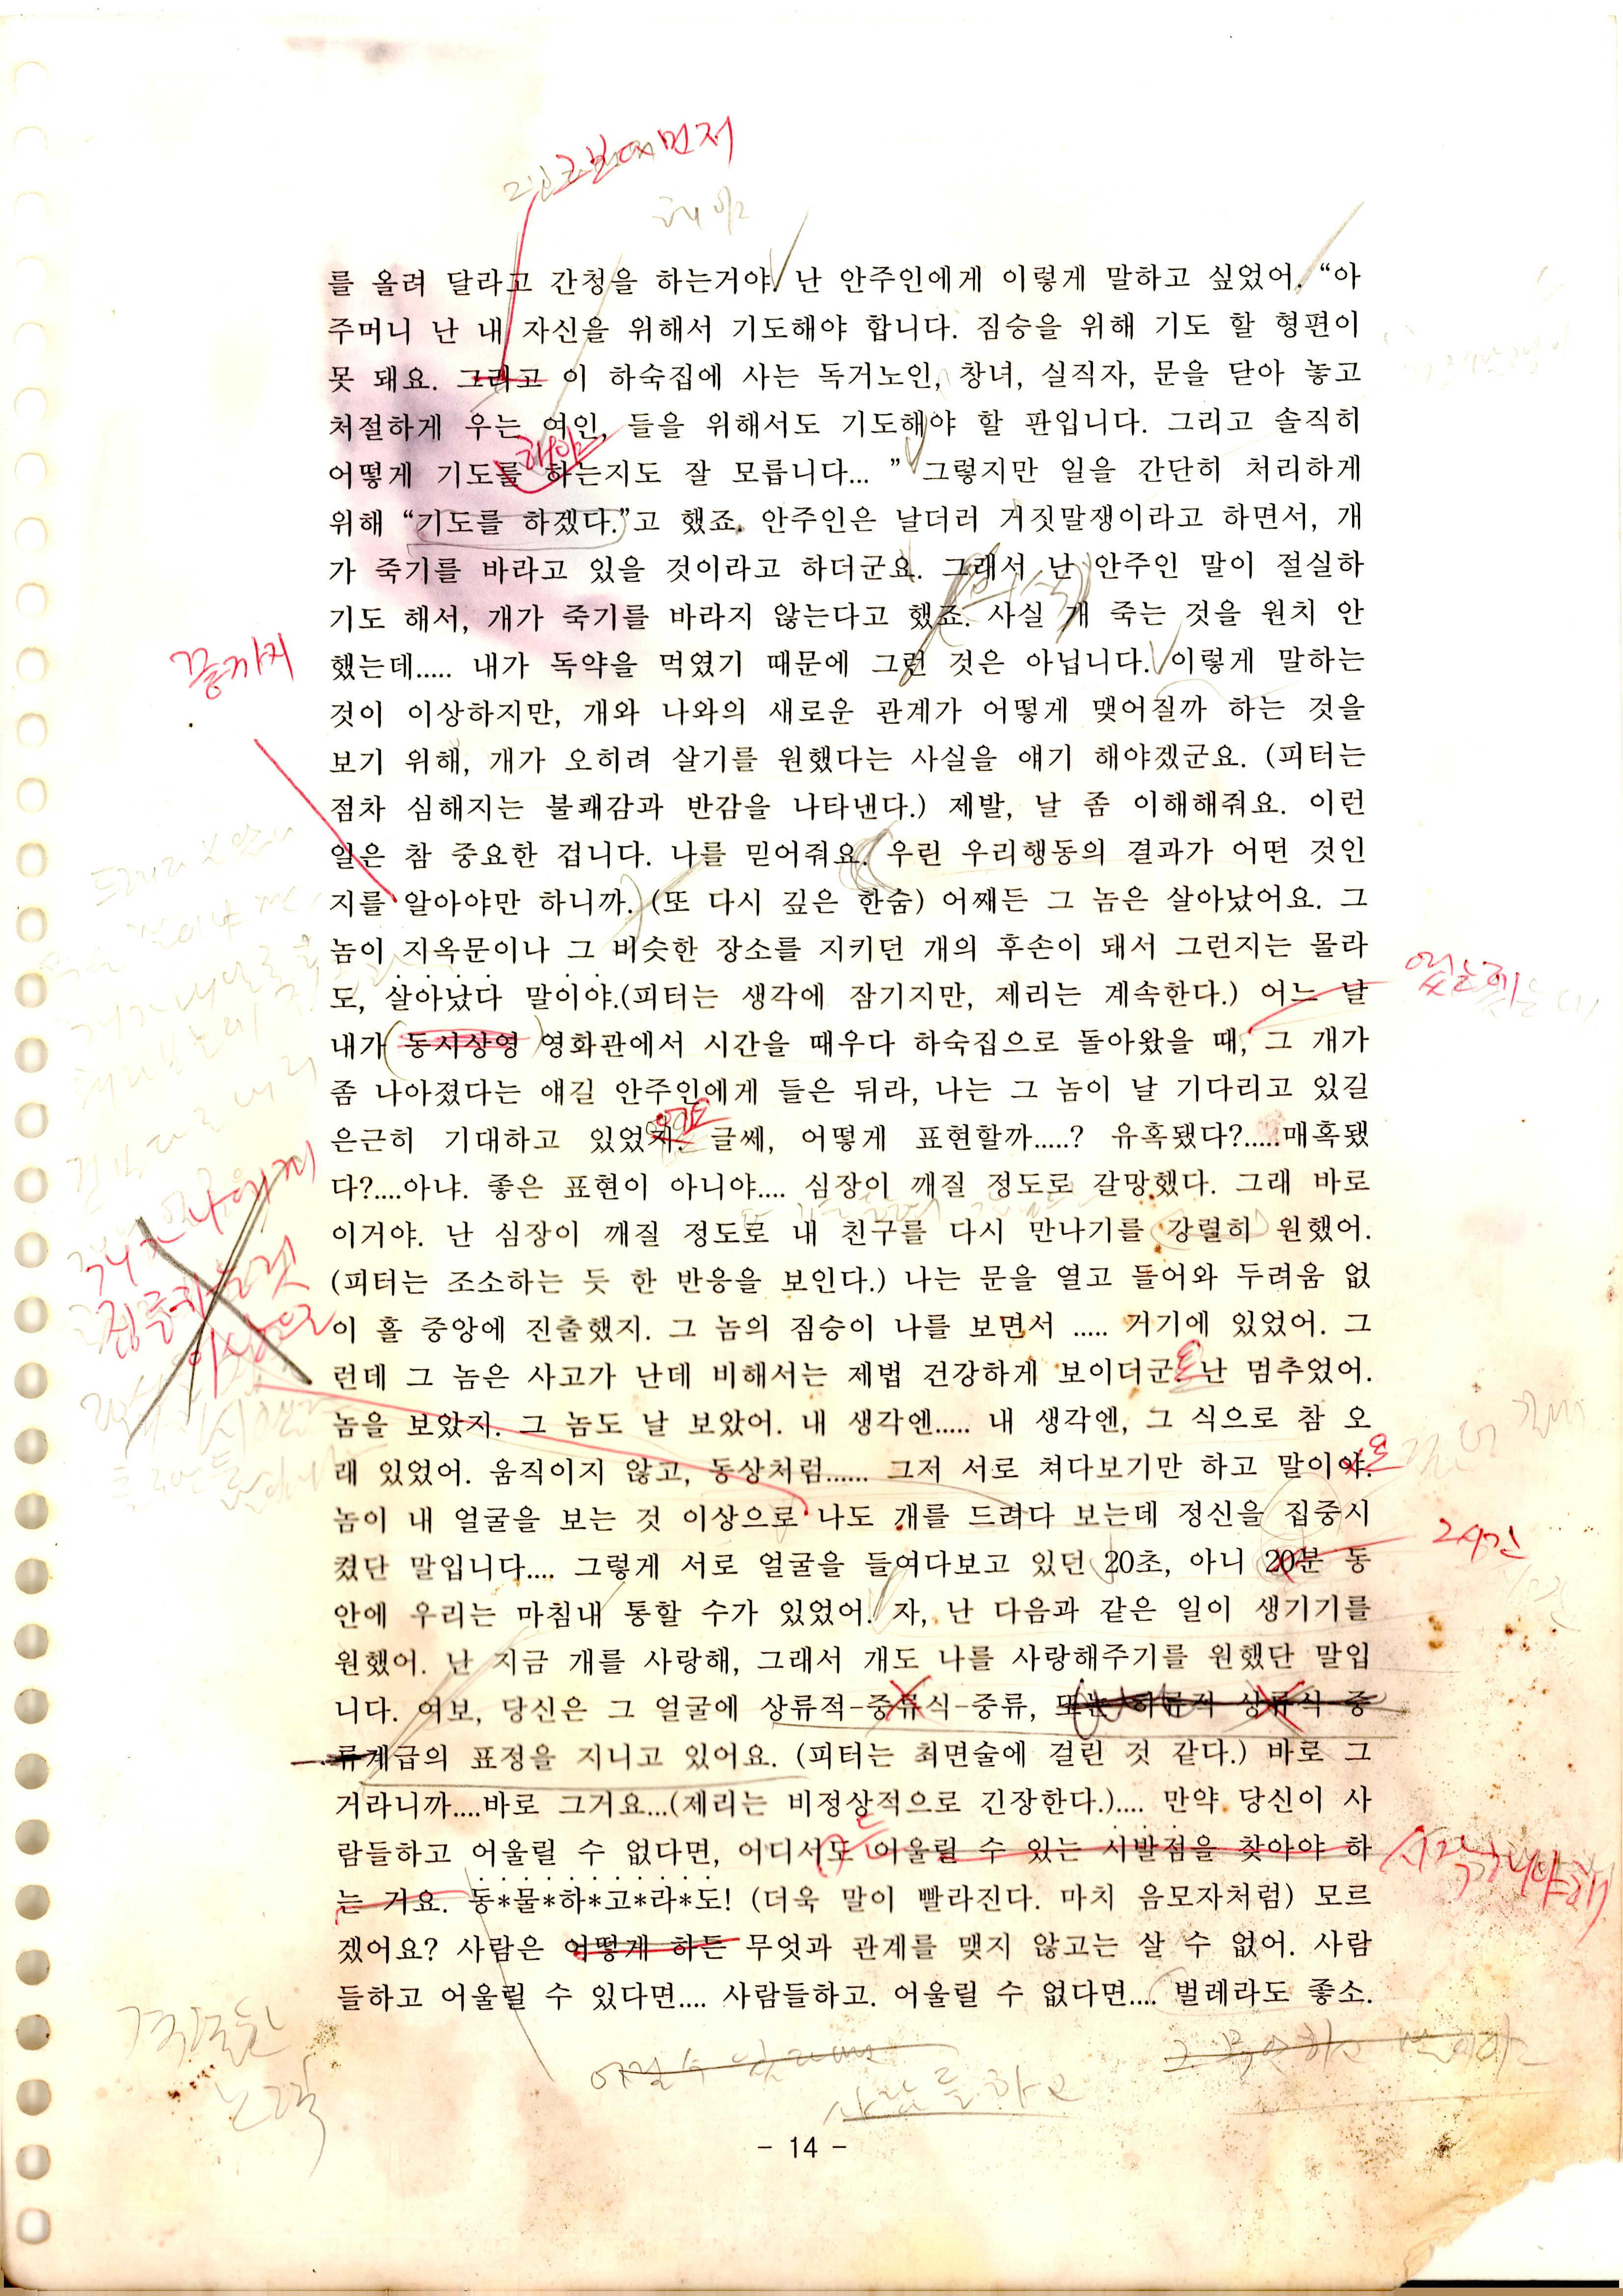 먼저
해야
를 올려 달라고 간청을 하는거야. 난 안주인에게 이렇게 말하고 싶었어. “아
주머니 난 내 자신을 위해서 기도해야 합니다. 짐승을 위해 기도 할 형편이
못 돼요. 그리고 이 하숙집에 사는 독거노인, 창녀, 실직자, 문을 닫아 놓고
처절하게 우는 여인, 들을 위해서도 기도해야 할 판입니다. 그리고 솔직히
해야
어떻게 기도를 하는지도 잘 모릅니다... ” 그렇지만 일을 간단히 처리하게
위해 “기도를 하겠다.”고 했죠. 안주인은 날더러 거짓말쟁이라고 하면서, 개
가 죽기를 바라고 있을 것이라고 하더군요. 그래서 난 안주인 말이 절실하
기도 해서, 개가 죽기를 바라지 않는다고 했죠. 사실 개 죽는 것을 원치 안
끝까지
했는데..... 내가 독약을 먹였기 때문에 그런 것은 아닙니다. 이렇게 말하는
것이 이상하지만, 개와 나와의 새로운 관계가 어떻게 맺어질까 하는 것을
보기 위해, 개가 오히려 살기를 원했다는 사실을 얘기 해야겠군요. (피터는
점차 심해지는 불쾌감과 반감을 나타낸다.) 제발, 날 좀 이해해줘요. 이런
일은 참 중요한 겁니다. 나를 믿어줘요. 우린 우리행동의 결과가 어떤 것인
지를 알아야만 하니까. (또 다시 깊은 한숨) 어째든 그 놈은 살아났어요. 그
놈이 지옥문이나 그 비슷한 장소를 지키던 개의 후손이 돼서 그런지는 몰라
도, 살아났다 말이야.(피터는 생각에 잠기지만, 제리는 계속한다.) 어느 날
내가 동시상영 영화관에서 시간을 때우다 하숙집으로 돌아왔을 때, 그 개가
좀 나아졌다는 얘길 안주인에게 들은 뒤라, 나는 그 놈이 날 기다리고 있길
은근히 기대하고 있었지. 글쎄, 어떻게 표현할까.....? 유혹됐다?.....매혹됐
다?....아냐. 좋은 표현이 아니야.... 심장이 깨질 정도로 갈망했다. 그래 바로
이거야. 난 심장이 깨질 정도로 내 친구를 다시 만나기를 강렬히 원했어.
(피터는 조소하는 듯 한 반응을 보인다.) 나는 문을 열고 들어와 두려움 없
이상으로
이 홀 중앙에 진출했지. 그 놈의 짐승이 나를 보면서 ..... 거기에 있었어. 그
런데 그 놈은 사고가 난데 비해서는 제법 건강하게 보이더군. 난 멈추었어.
놈을 보았지. 그 놈도 날 보았어. 내 생각엔..... 내 생각엔, 그 식으로 참 오
래 있었어. 움직이지 않고, 동상처럼...... 그저 서로 쳐다보기만 하고 말이야.
놈이 내 얼굴을 보는 것 이상으로 나도 개를 드려다 보는데 정신을 집중시
2시간
켰단 말입니다.... 그렇게 서로 얼굴을 들여다보고 있던 20초, 아니 20분 동
안에 우리는 마침내 통할 수가 있었어. 자, 난 다음과 같은 일이 생기기를
원했어. 난 지금 개를 사랑해, 그래서 개도 나를 사랑해주기를 원했단 말입
니다. 여보, 당신은 그 얼굴에 상류적-중류식-중류, 또는 하류적 상류식 중
류계급의 표정을 지니고 있어요. (피터는 최면술에 걸린 것 같다.) 바로 그
거라니까....바로 그거요...(제리는 비정상적으로 긴장한다.).... 만약 당신이 사
람들하고 어울릴 수 없다면, 어디서도 어울릴 수 있는 시발점을 찾아야 하
는 거요. 동*물*하*고*라*도! (더욱 말이 빨라진다. 마치 음모자처럼) 모르
겠어요? 사람은 어떻게 하든 무엇과 관계를 맺지 않고는 살 수 없어. 사람
들하고 어울릴 수 있다면.... 사람들하고. 어울릴 수 없다면.... 벌레라도 좋소.
노력
사람들하고
- 14 -